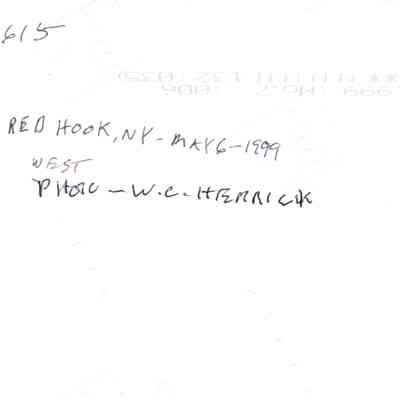 615
RED HOOK, NY - MAY 6 - 1999
WEST
PHOTO - W.C. HERRICK